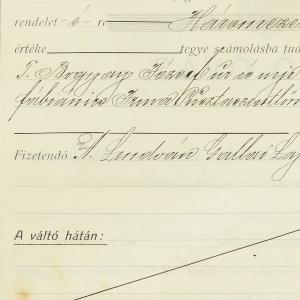 rendelet -é- re Háromeze
értéke tegye számolásba tud
T. Bogyay József úr és neje
fábiánics Irma Pusztaszentlőri
Fizetendő A. Lendván Gallai Laj
A váltó hátán: